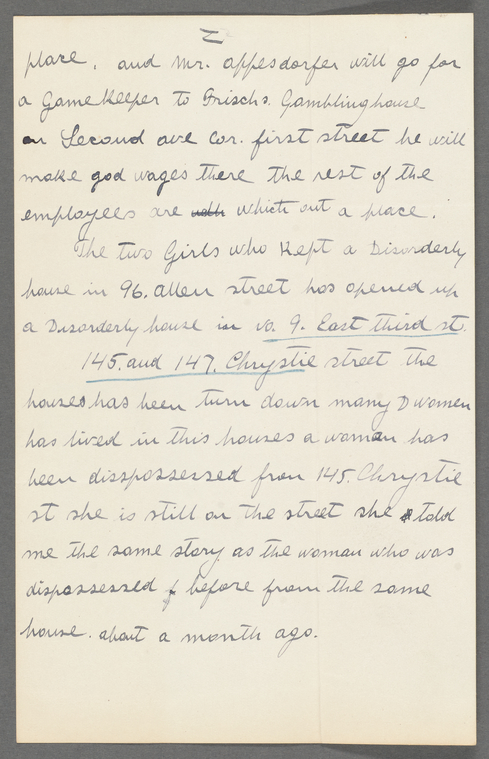 2
place. and Mr. Appesdorfer will go for
a Game Keeper to Frischs. Gambling house
on Second ave cor. first street he will
make god wages there the rest of the
employees are which out a place.
The two Girls who Kept a Disorderly
house in 96. allen street has opened up
a Disorderly house in no. 9. East third st.
145. and 147. Chrystie street the
houses has been turn down many D women
has lived in this houses a woman has
been disspossessed from 145. Chrystie
st she is still on the street she told
me the same story as the woman who was
dispossessed before from the same
house. about a month ago.